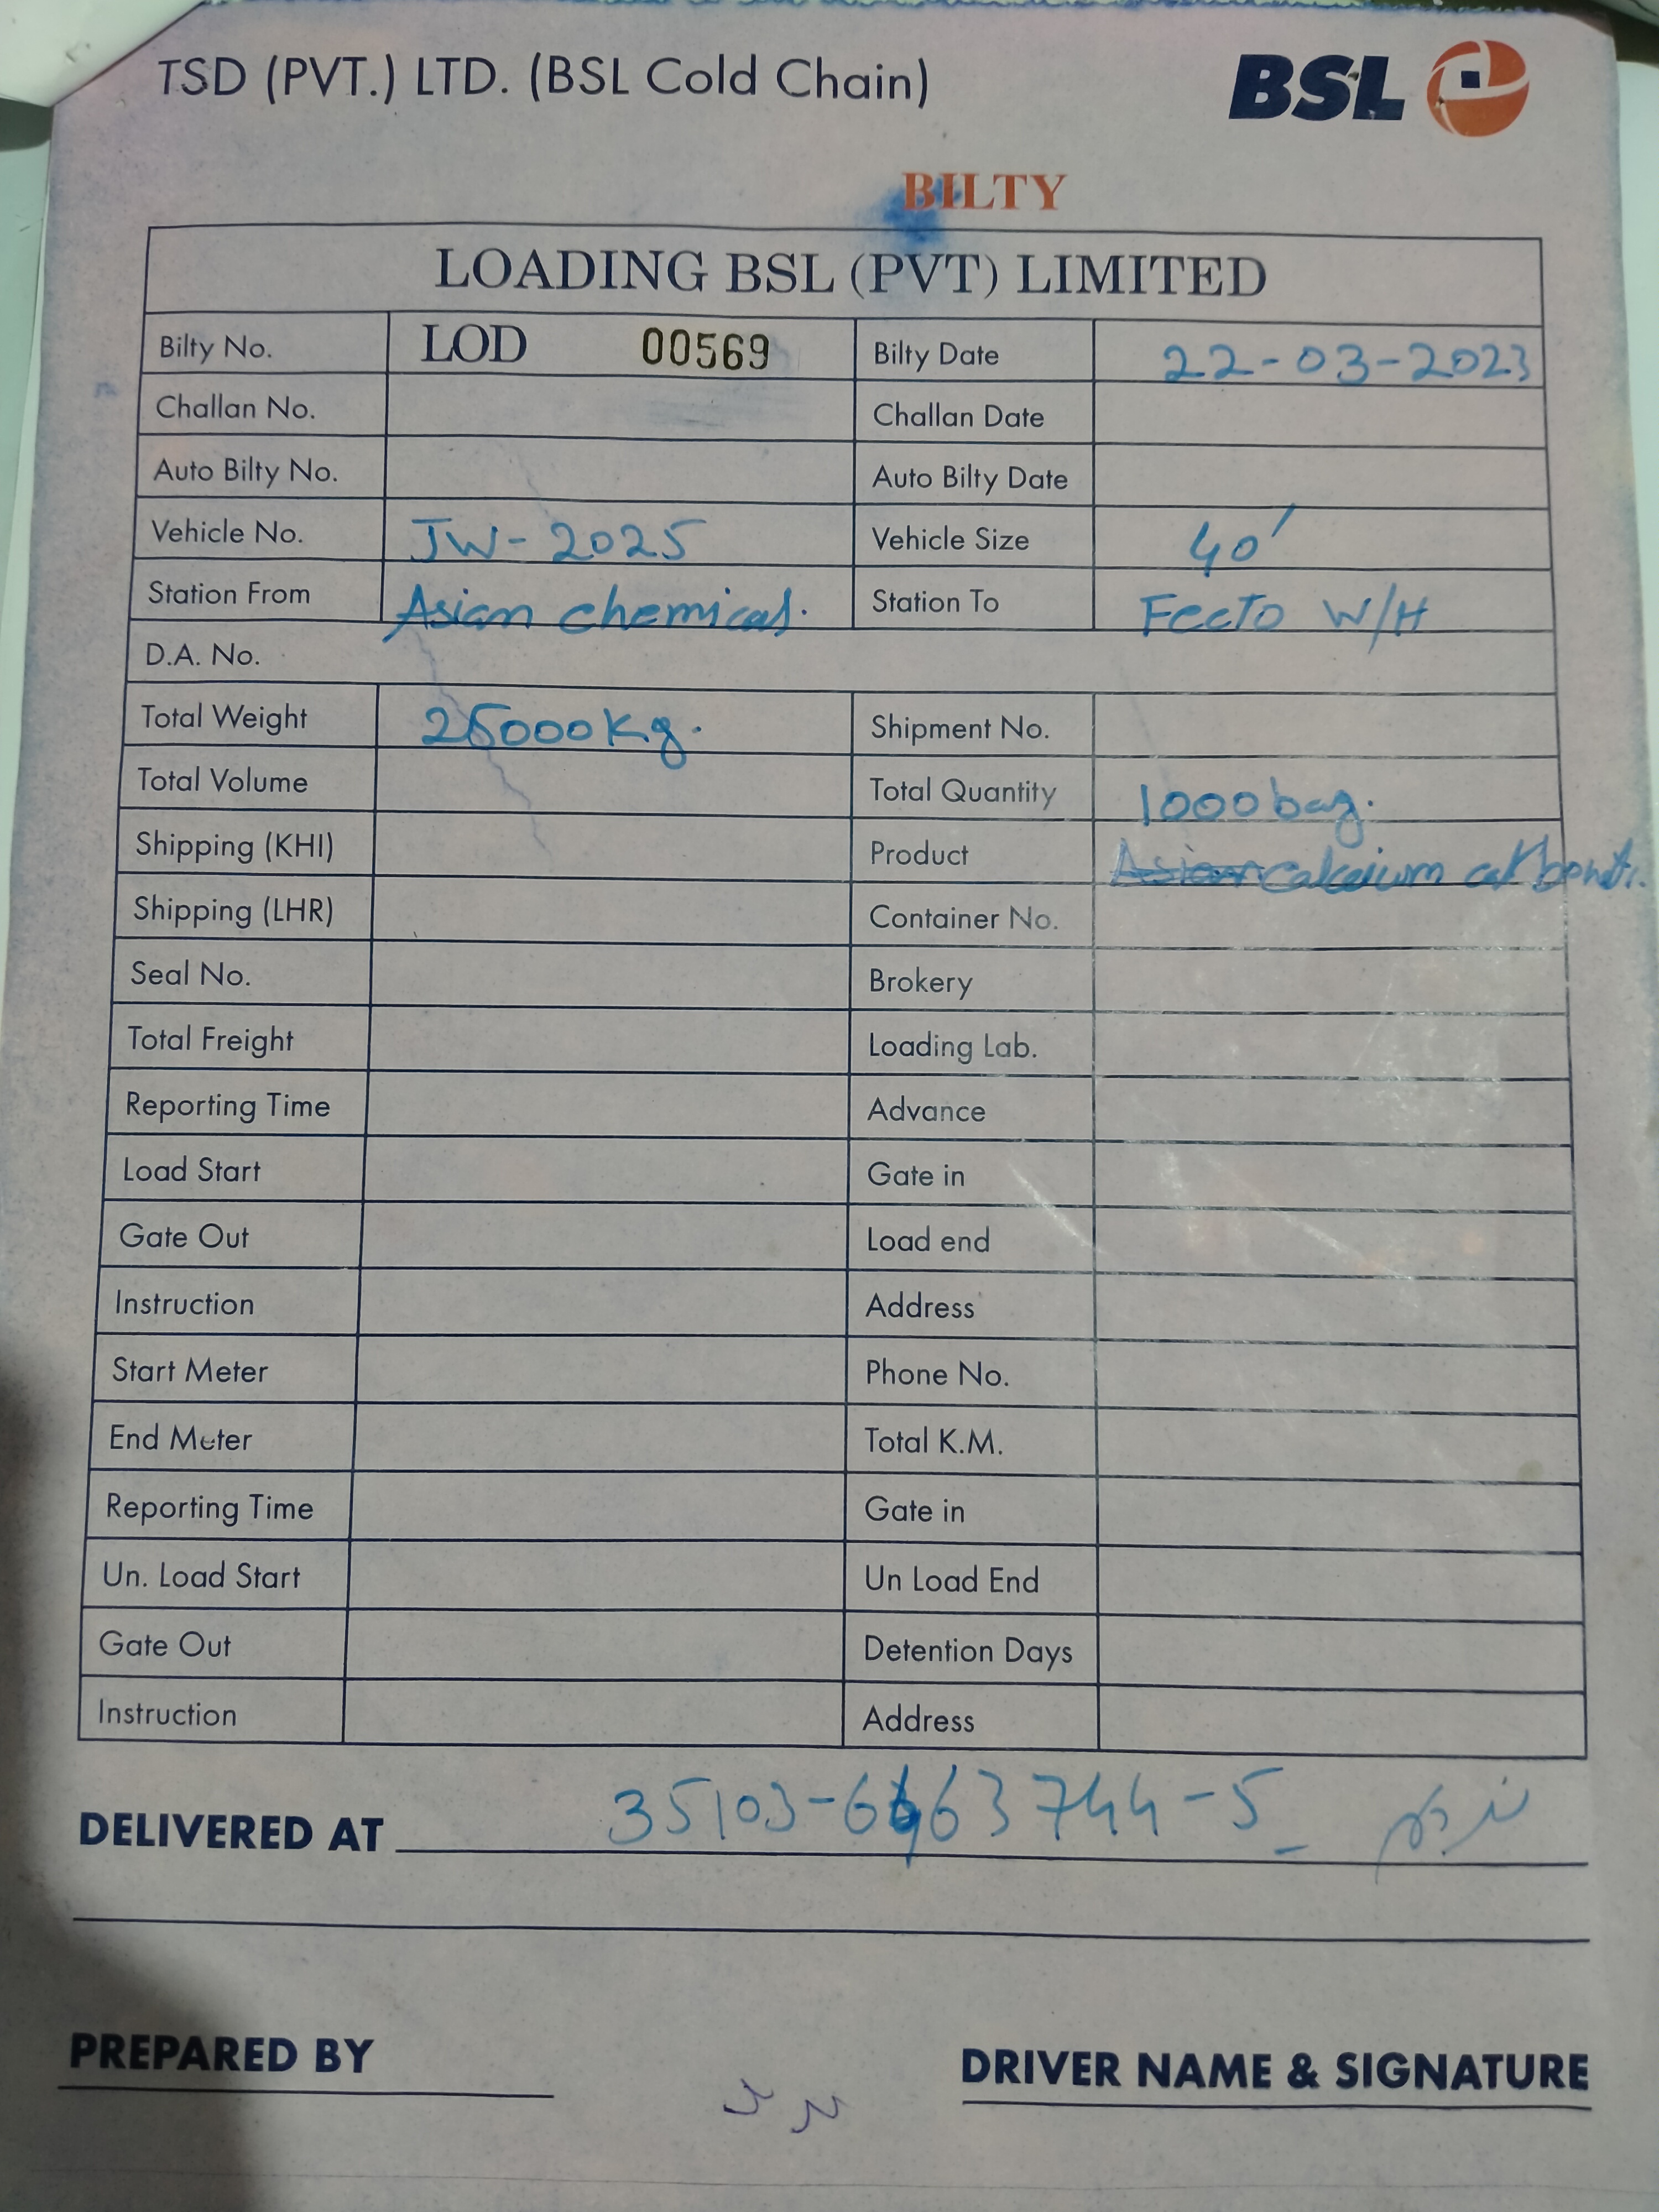 TSD (PVT.) LTD. (BSL Cold Chain) BSL
BILTY
LOADING BSL (PVT) LIMITED
Bilty No. LOD 00569 Bilty Date 22-03-2023
Challan No. Challan Date
Auto Bilty No. Auto Bilty Date
Vehicle No. JW-2025 Vehicle Size 40'
Station From Asian chemical. Station To Fecto W/H
D.A. No.
Total Weight 25000 Kg. Shipment No.
Total Volume Total Quantity 1000 bag.
Shipping (KHI) Product Asian calcium
Shipping (LHR) Container No.
Seal No. Brokery
Total Freight Loading Lab.
Reporting Time Advance
Load Start Gate in
Gate Out Load end
Instruction Address
Start Meter Phone No.
End Meter Total K.M.
Reporting Time Gate in
Un. Load Start Un Load End
Gate Out Detention Days
Instruction Address
DELIVERED AT
PREPARED BY DRIVER NAME & SIGNATURE